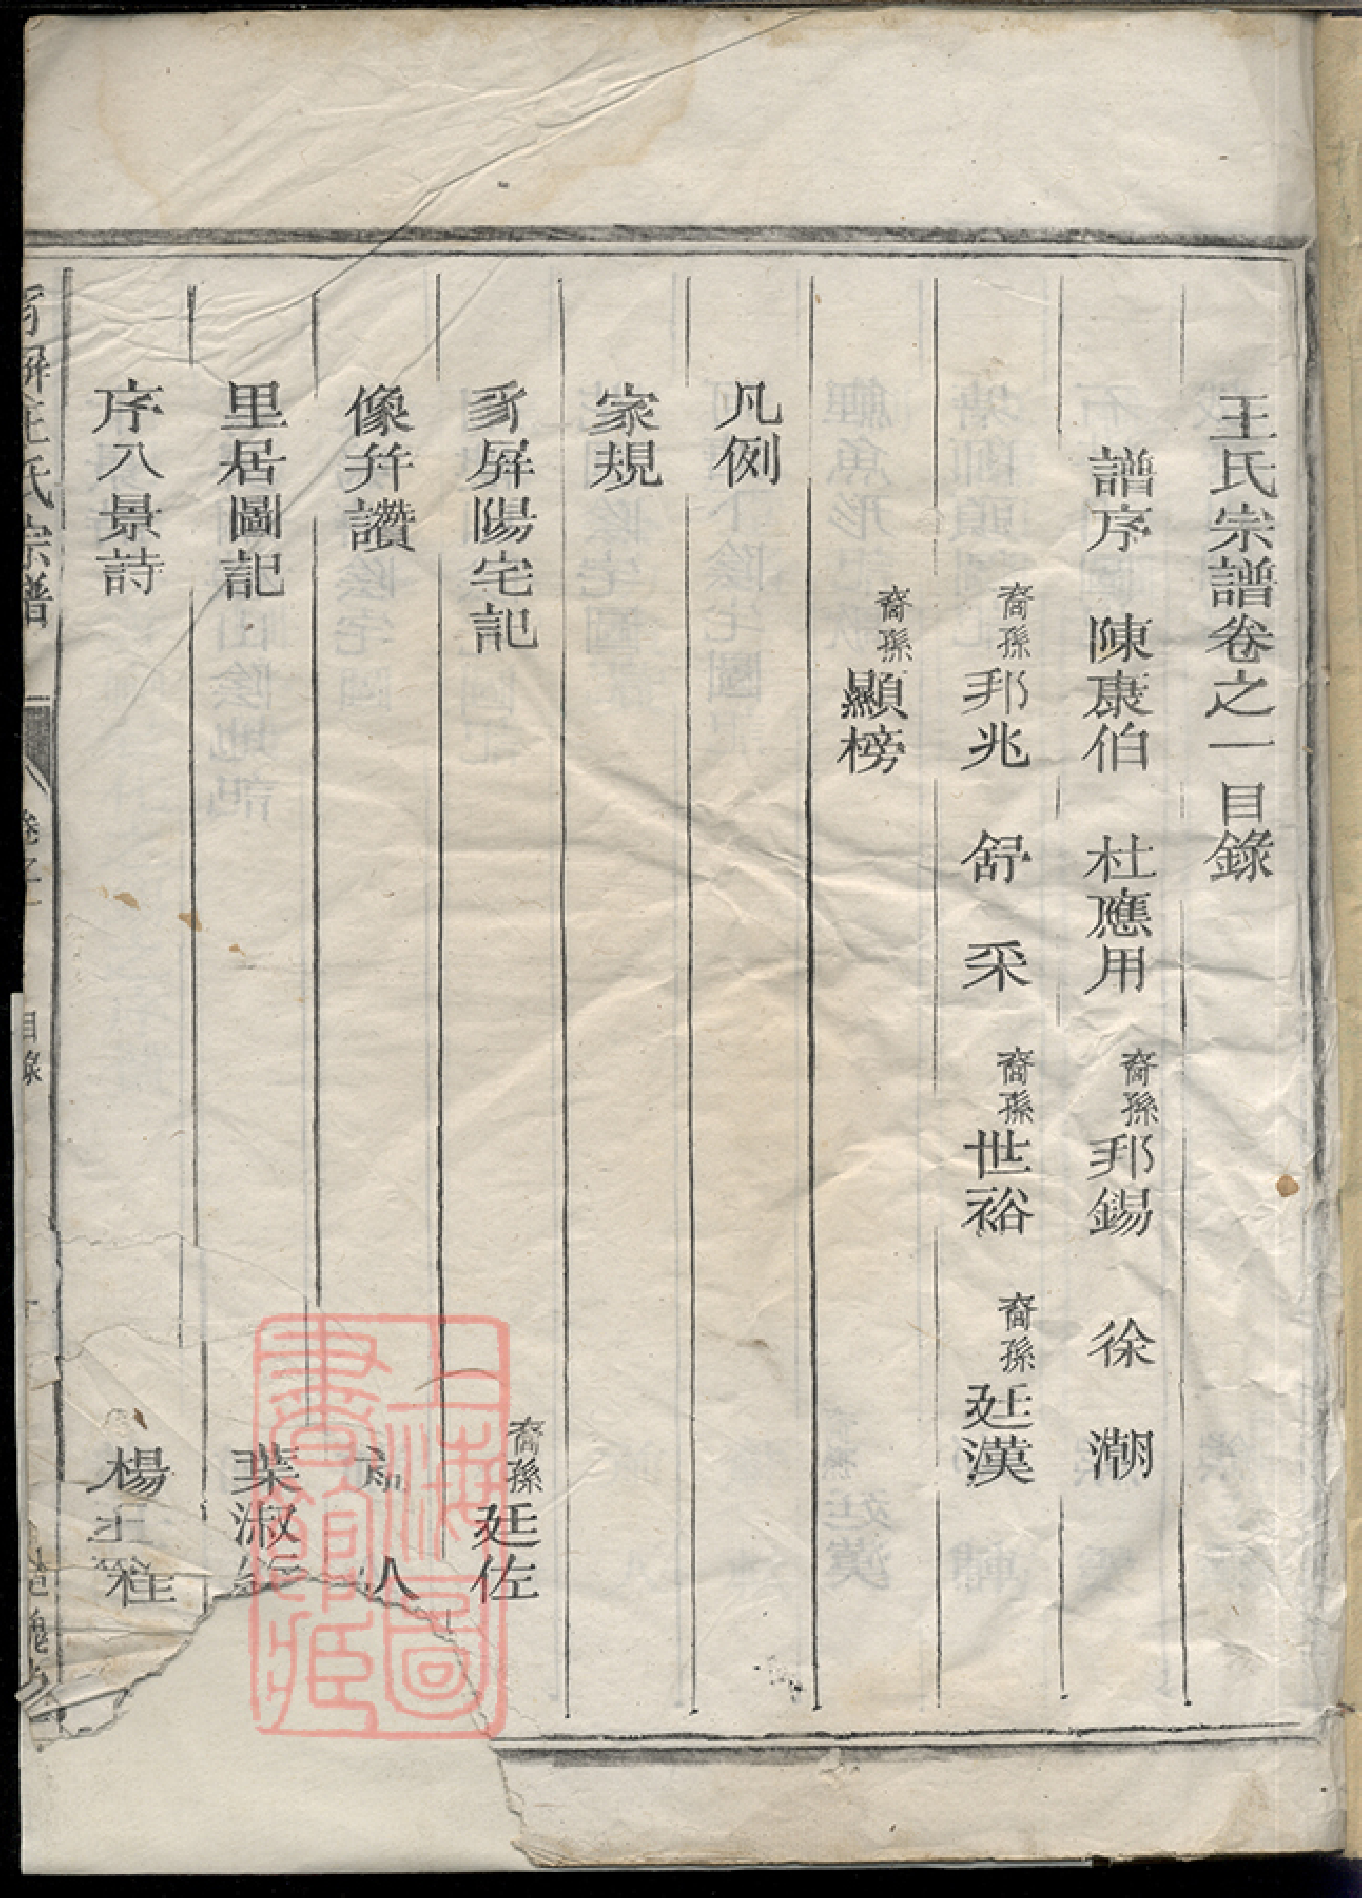 王氏宗譜卷之一目錄
譜序 陳康伯 杜應用 裔孫邦錫 徐潮
裔孫邦兆 舒采 裔孫世裕 裔孫廷漢
裔孫顯榜
凡例
家規
豸屏陽宅記 裔孫廷佐
像并讚 人
里居圖記 葉淑
序八景詩 楊
屏王氏宗譜 卷之 目錄
上海圖書館藏